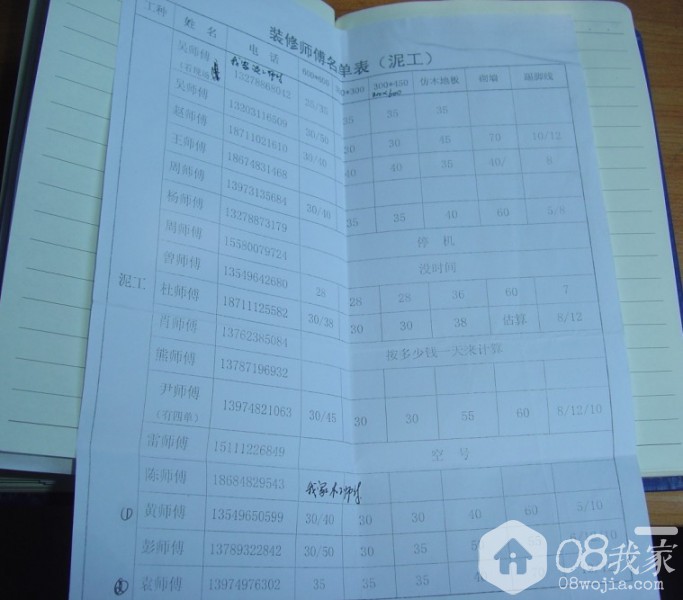 装修师傅名单表（泥工）
工种 姓名 电话 600*600 300*300 300*450 仿木地板 砌墙 踢脚线
吴师傅 13278868042 25/35 35 35 35
吴师傅 13203116509 30/50 45 70 10/12
赵师傅 18711021610 30/40 40 40 35 40/ 8
王师傅 18674831468
周师傅 13973135684 30/40 35 35 40 60 5/8
杨师傅 13278873179 停机
周师傅 15580079724 没时间
曾师傅 13549642680 28 28 28 36 60 7
泥工 杜师傅 18711125582 30/38 30 30 38 估算 8/12
肖师傅 13762385084 按多少钱一天来计算
熊师傅 13787196932
尹师傅 13974821063 30/45 30 30 55 60 8/12/10
（有四单）
雷师傅 15111226849 空号
陈师傅 18684829543 我家木师傅
① 黄师傅 13549650599 30/40 30 30 40 60 5/10
彭师傅 13789322842 30/50 30 35
② 袁师傅 13974976302 35 35 35 40
08我家
08wojia.com